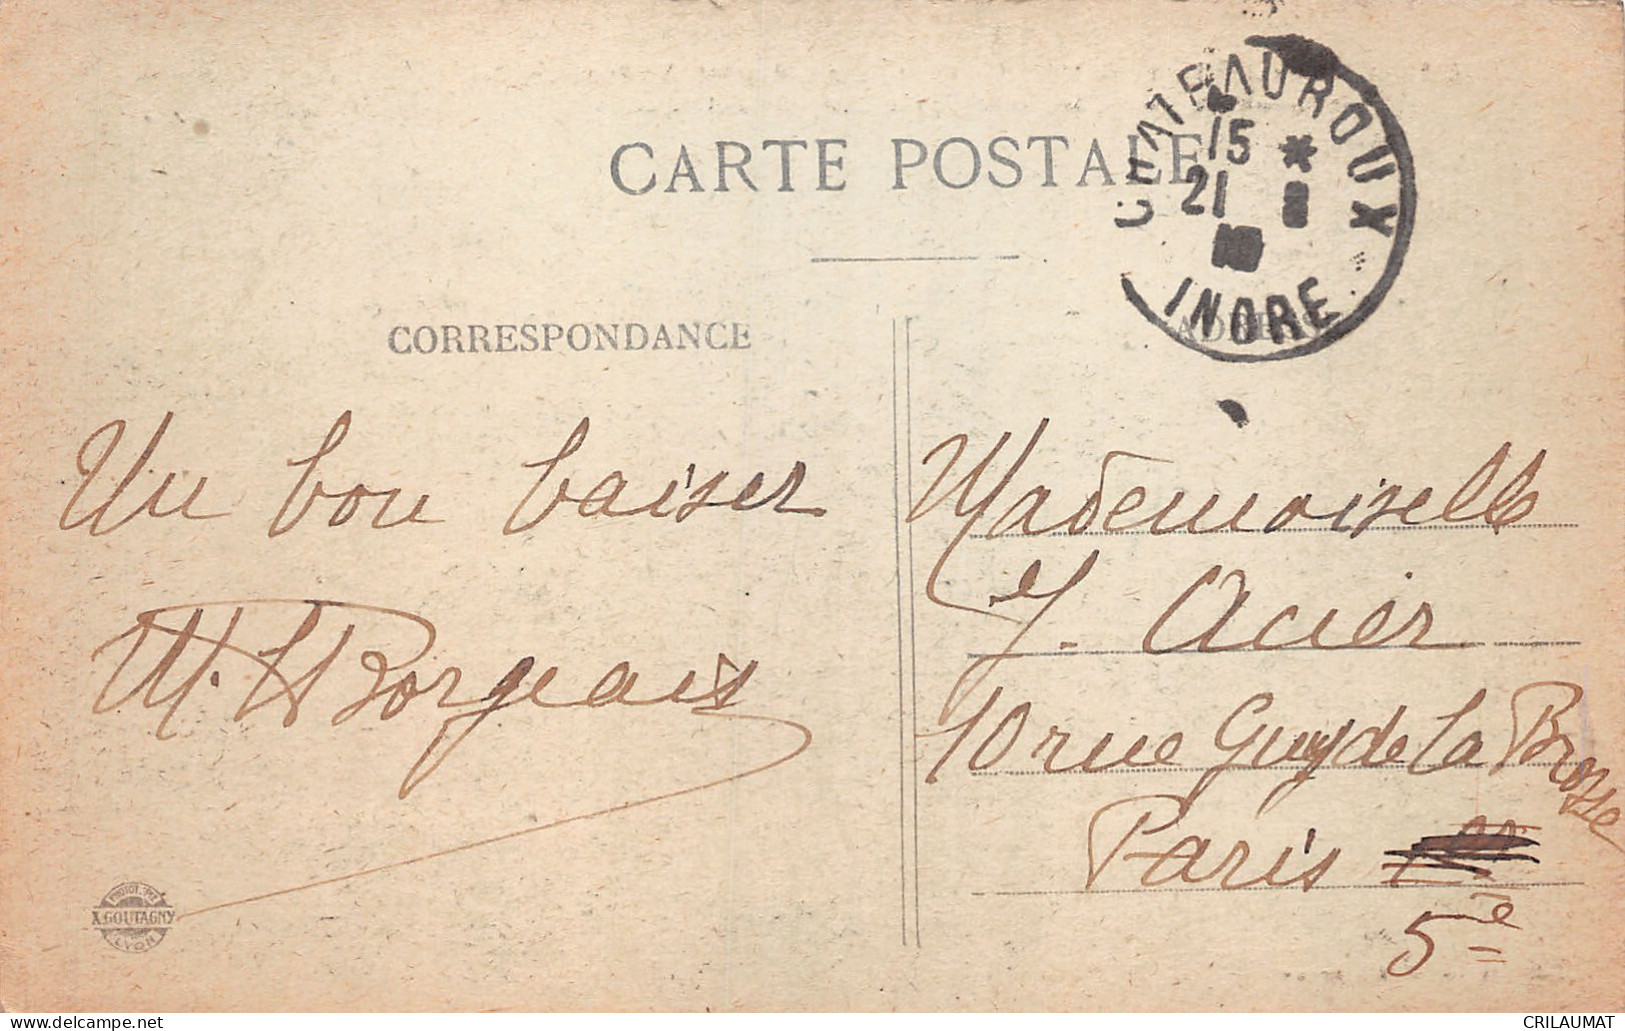 CARTE POSTALE
CHATEAUROUX
15 *
21
INDRE
CORRESPONDANCE
ADRESSE
Un bon baiser
M. Borgeais
Mademoiselle
Y. Acier
10 rue Guy de la Brosse
Paris
5e
PHOTOTYPIE
X. GOUTAGNY
LYON
CRILAUMAT